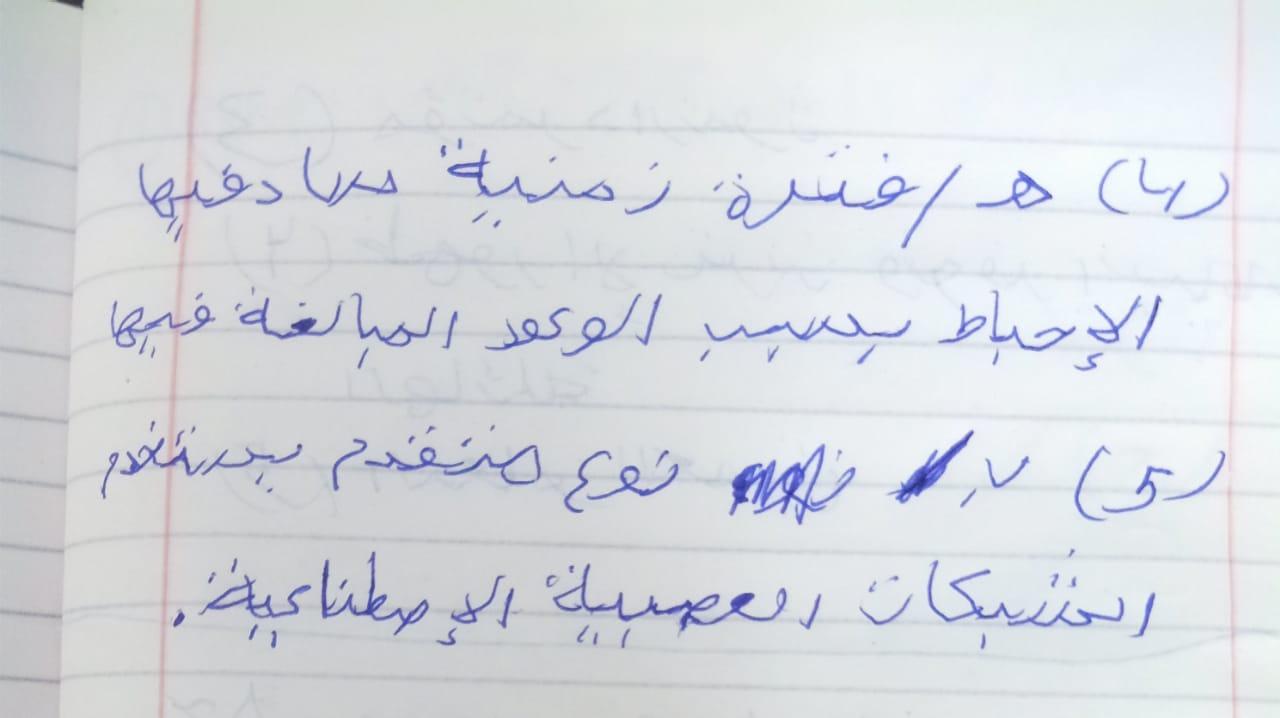 (4) هي فترة زمنية ساد فيها
الإحباط بسبب الوعود المبالغة فيها
(5) نوع متقدم يستخدم
الشبكات العصبية الإصطناعية.